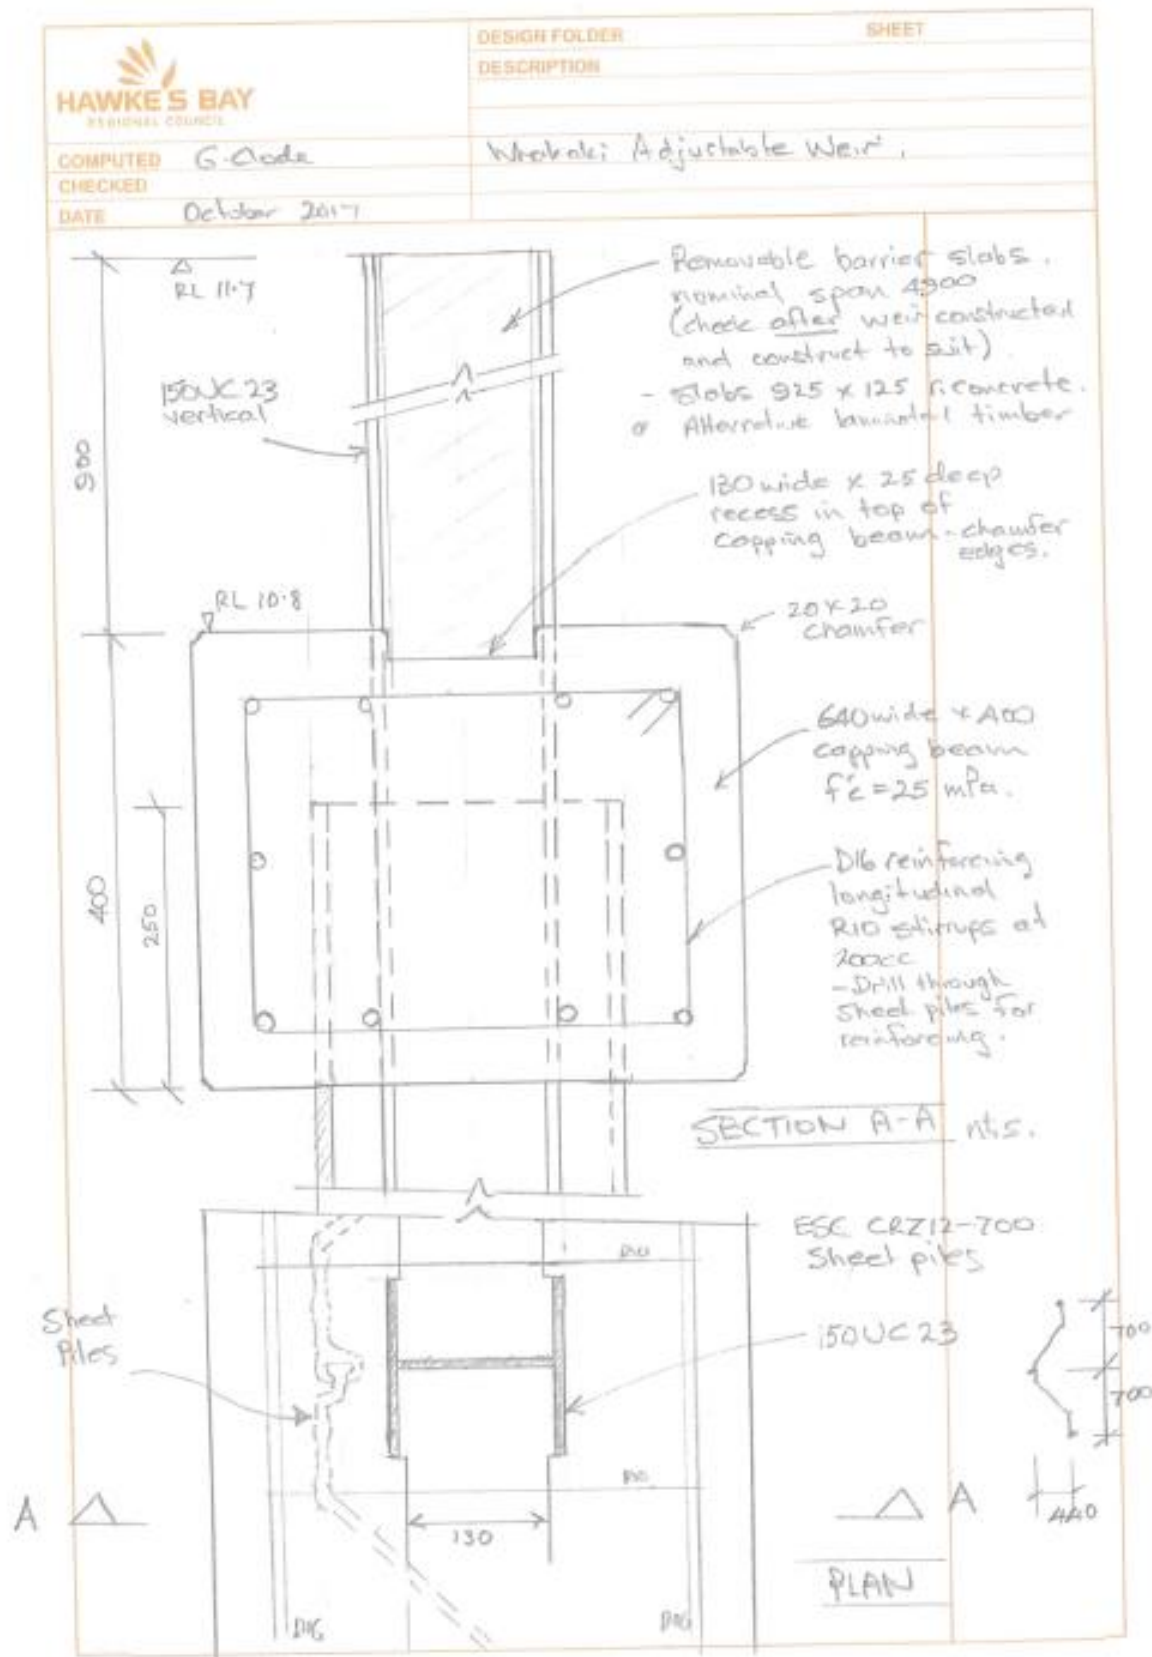 HAWKE'S BAY
REGIONAL COUNCIL
DESIGN FOLDER
SHEET
DESCRIPTION
COMPUTED G. Clode
Whakaki Adjustable Weir.
CHECKED
DATE October 2017
RL 11.7
Removable barrier slabs.
nominal span 4900
(check after weir constructed
and construct to suit)
- Slabs 925 x 125 r.concrete.
or Alternative laminated timber
150UC23
vertical
900
130 wide x 25 deep
recess in top of
capping beam - chamfer
edges.
RL 10.8
20x20
chamfer
640 wide x 400
capping beam
f'c = 25 mPa.
400
250
D16 reinforcing
longitudinal
R10 stirrups at
200cc
- Drill through
sheet piles for
reinforcing.
SECTION A-A nts.
ESC CRZ12-700
Sheet piles
R10
Sheet
Piles
150UC23
700
700
R10
A
A
440
130
PLAN
D16
D16